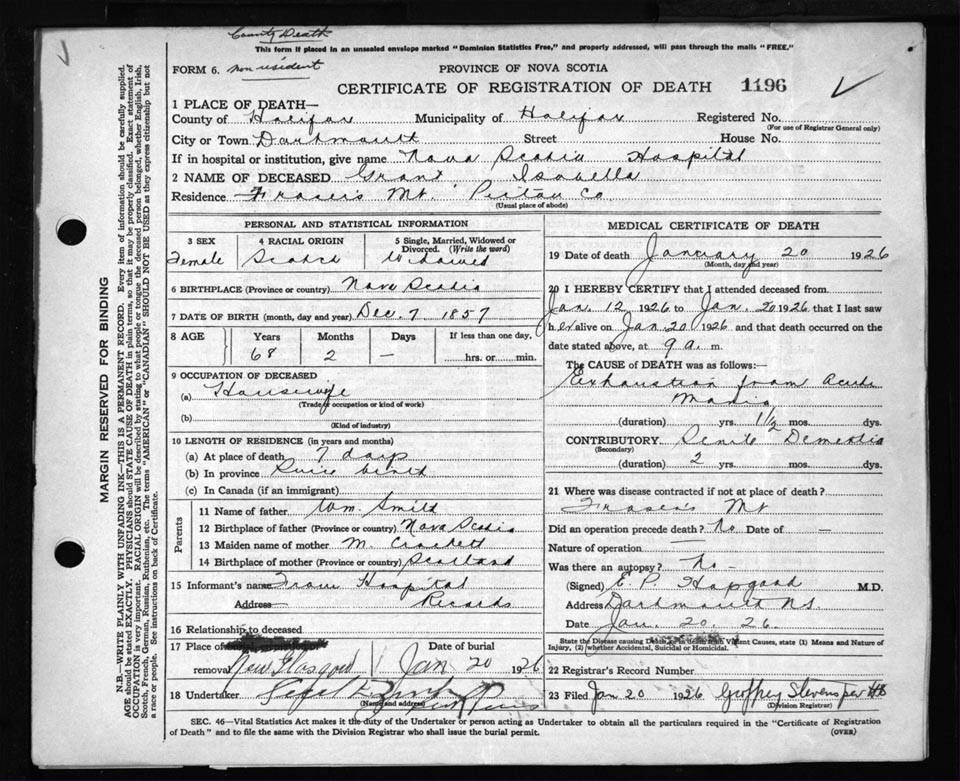 County Death
This form if placed in an unsealed envelope marked "Dominion Statistics Free," and properly addressed, will pass through the mails "FREE."
FORM 6. non resident
PROVINCE OF NOVA SCOTIA
CERTIFICATE OF REGISTRATION OF DEATH 1196
1 PLACE OF DEATH—
County of Halifax Municipality of Halifax Registered No.
(For use of Registrar General only)
City or Town Dartmouth Street House No.
If in hospital or institution, give name Nova Scotia Hospital
2 NAME OF DECEASED Grant Isabella
Residence Fraser's Mt. Pictou Co
(Usual place of abode)
PERSONAL AND STATISTICAL INFORMATION
3 SEX 4 RACIAL ORIGIN 5 Single, Married, Widowed or Divorced. (Write the word)
Female Scotch Widowed
6 BIRTHPLACE (Province or country) Nova Scotia
7 DATE OF BIRTH (month, day and year) Dec. 7. 1857
8 AGE Years Months Days If less than one day,
68 2 — hrs. or min.
9 OCCUPATION OF DECEASED
(a) Housewife
(Trade, occupation or kind of work)
(b)
(Kind of industry)
10 LENGTH OF RESIDENCE (in years and months)
(a) At place of death 7 days
(b) In province Since birth
(c) In Canada (if an immigrant)
Parents
11 Name of father Wm. Smith
12 Birthplace of father (Province or country) Nova Scotia
13 Maiden name of mother M. Crockett
14 Birthplace of mother (Province or country) Scotland
15 Informant's name From Hospital
Address Records
16 Relationship to deceased
17 Place of Date of burial
removal New Glasgow Jan 20 1926
18 Undertaker
(Name and address)
MEDICAL CERTIFICATE OF DEATH
19 Date of death January 20 1926
(Month, day and year)
20 I HEREBY CERTIFY that I attended deceased from
Jan. 12 1926 to Jan. 20 1926 that I last saw
her alive on Jan 20 1926 and that death occurred on the
date stated above, at 9 a. m.
The CAUSE of DEATH was as follows:—
Exhaustion from Acute
Mania
(duration) yrs. 1½ mos. dys.
CONTRIBUTORY Senile Dementia
(Secondary)
(duration) 2 yrs. mos. dys.
21 Where was disease contracted if not at place of death?
Fraser's Mt
Did an operation precede death? No Date of —
Nature of operation —
Was there an autopsy? No —
(Signed) E. P. Hopgood M.D.
Address Dartmouth N.S.
Date Jan. 20. 26.
State the Disease causing Death, or in death from Violent Causes, state (1) Means and Nature of Injury, (2) whether Accidental, Suicidal or Homicidal.
22 Registrar's Record Number
23 Filed Jan 20 1926 Geoffrey Stevens per
(Division Registrar)
SEC. 46—Vital Statistics Act makes it the duty of the Undertaker or person acting as Undertaker to obtain all the particulars required in the "Certificate of Registration
of Death" and to file the same with the Division Registrar who shall issue the burial permit.
(OVER)
MARGIN RESERVED FOR BINDING
N.B.—WRITE PLAINLY WITH UNFADING INK—THIS IS A PERMANENT RECORD. Every item of information should be carefully supplied.
AGE should be stated EXACTLY. PHYSICIANS should STATE CAUSE OF DEATH in plain terms, so that it may be properly classified. Exact statement of
OCCUPATION is very important. RACIAL ORIGIN will be described by stating to what people or tongue the deceased person belonged, whether English, Irish,
Scotch, French, German, Russian, Ruthenian, etc. The terms "AMERICAN" or "CANADIAN" SHOULD NOT BE USED as they express citizenship but not
a race or people. See instructions on back of Certificate.